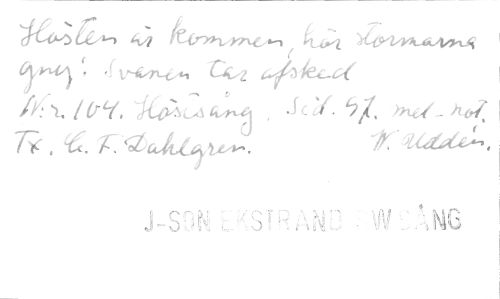 Hösten är kommen, hör stormarna
gny! Svanen tar afsked
N:r. 104. Höstsång. Sid. 97. mel-not.
Tx. C. F. Dahlgren. W. Uddén.
J-SON EKSTRAND W SÅNG